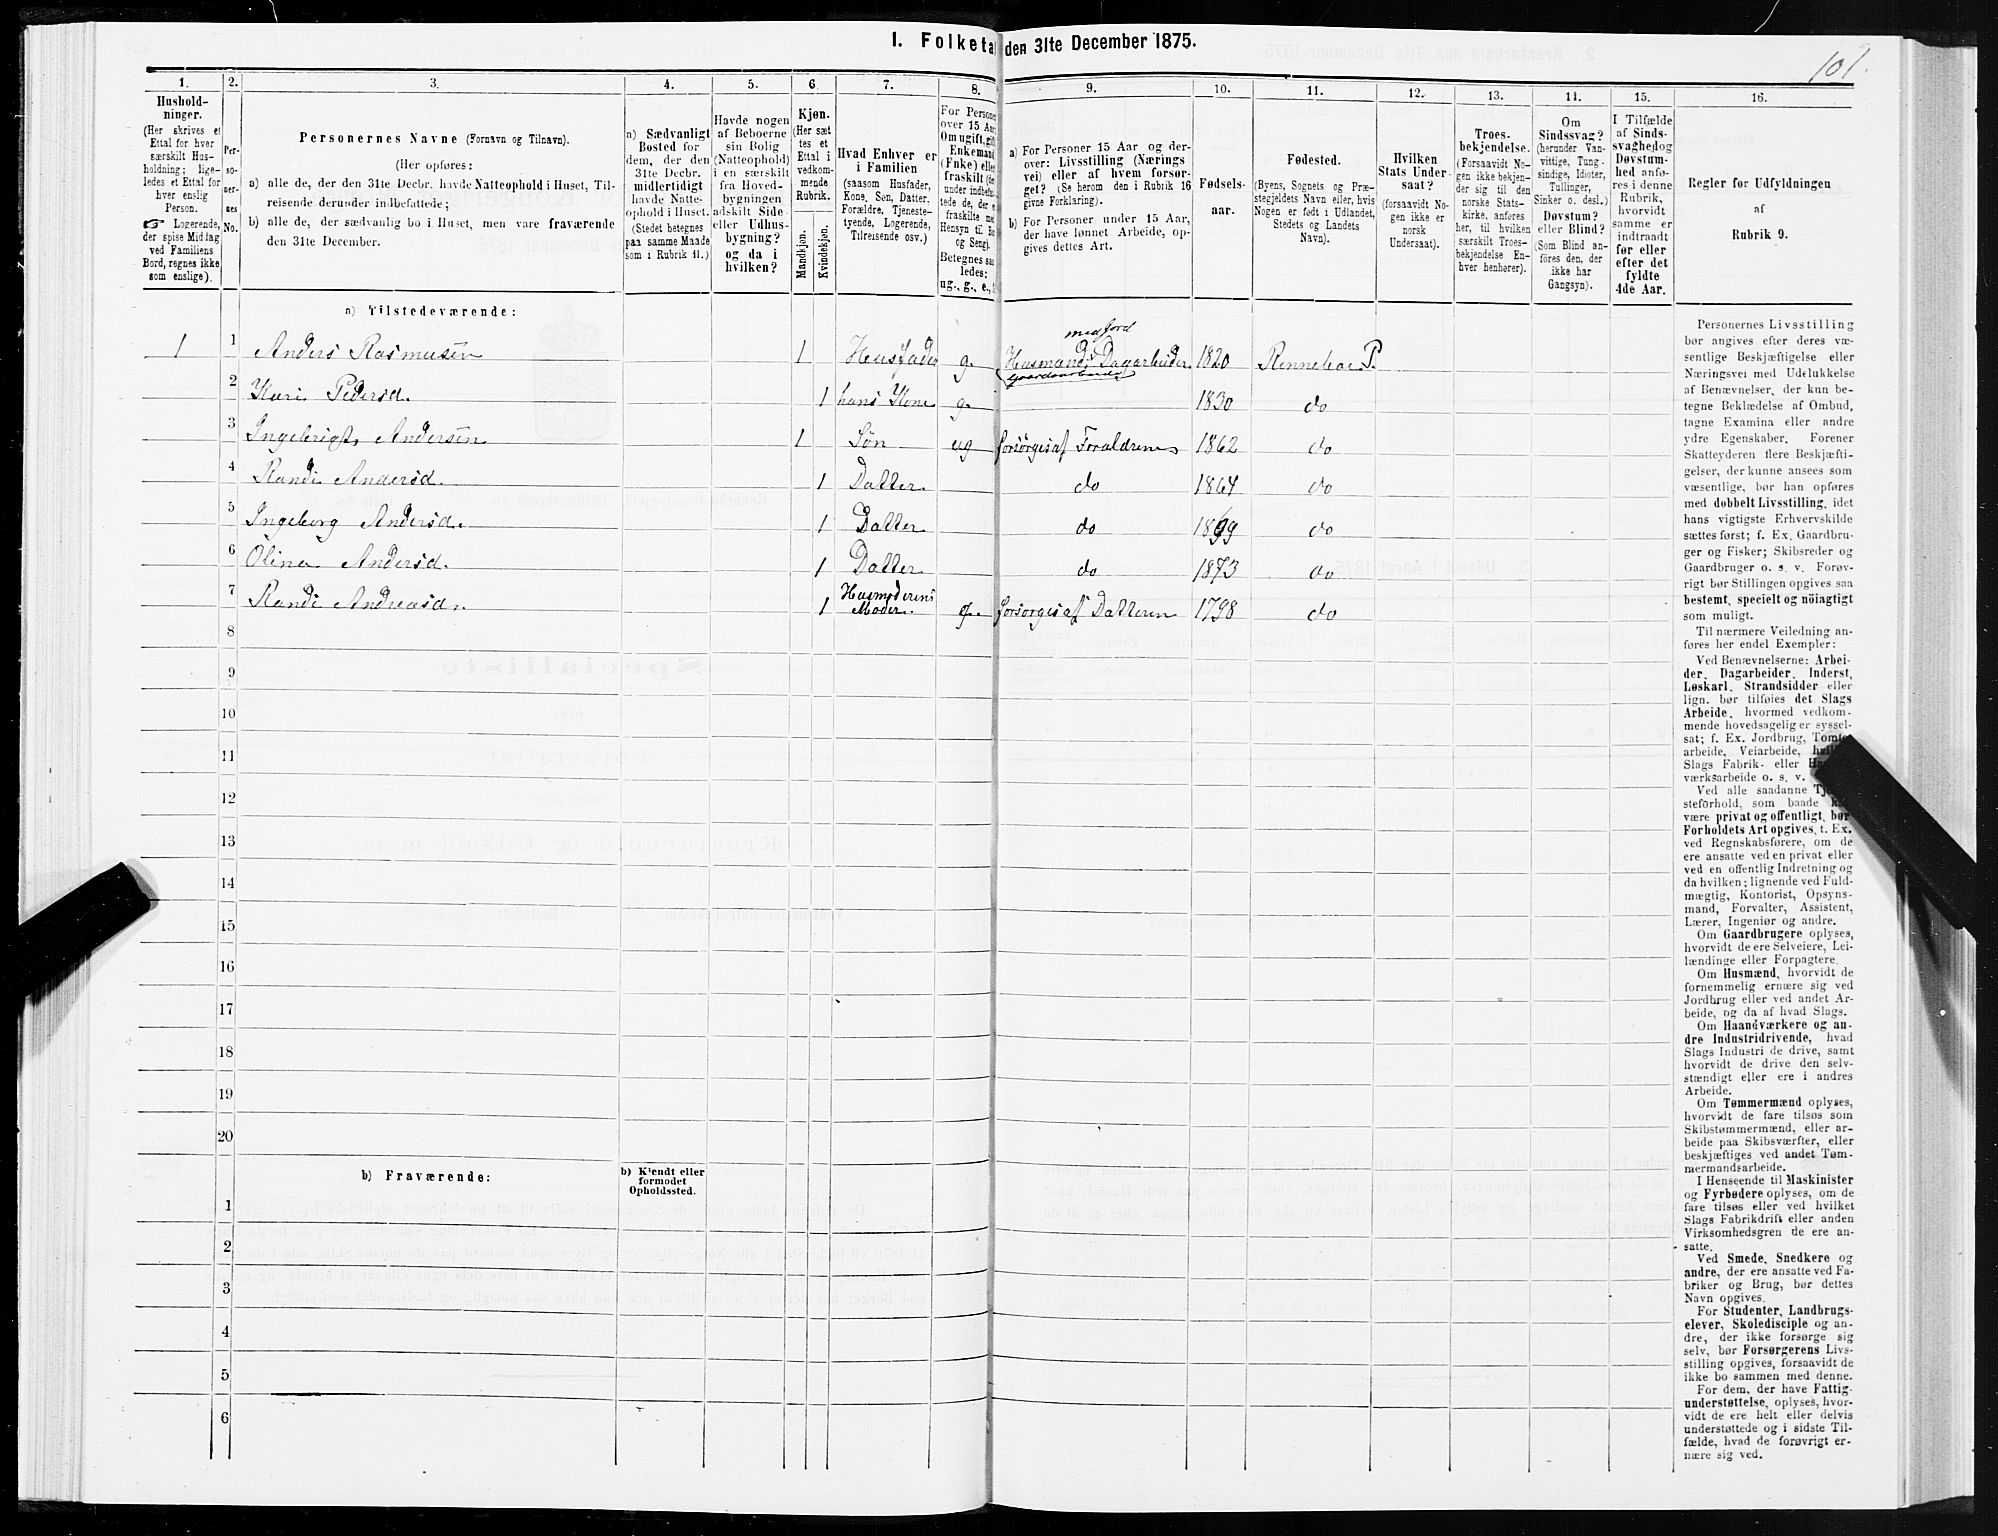 1. Folketa den 31te December 1875.
101.
1. 2. 3. 4. 5. 6. 7. 8. 9. 10. 11. 12. 13. 14. 15. 16.
Hushold-
ninger.
(Her skrives et
Ettal for hver
særskilt Hus-
holdning; lige-
ledes et Ettal for
hver enslig
Person.
☞ Logerende,
der spise Middag
ved Familiens
Bord, regnes ikke
som enslige).
Per-
so-
ner-
nes
No.
Personernes Navne (Fornavn og Tilnavn).
(Her opføres:
a) alle de, der den 31te Decbr. havde Natteophold i Huset, Til-
reisende derunder indbefattede;
b) alle de, der sædvanlig bo i Huset, men vare fraværende
den 31te December.
a) Sædvanligt
Bosted for
dem, der den
31te Decbr.
midlertidigt
havde Natte-
ophold i Huset.
(Stedet betegnes
paa samme Maade
som i Rubrik 11.)
Havde nogen
af Beboerne
sin Bolig
(Natteophold)
i en særskilt
fra Hoved-
bygningen
adskilt Side-
eller Udhus-
bygning?
og da i
hvilken?
Kjøn.
(Her sæt
tes et
Ettal i
vedkom-
mende
Rubrik.
Mandkjøn.
Kvindekjøn.
Hvad Enhver er
i Familien
(saasom Husfader,
Kone, Søn, Datter,
Forældre, Tjeneste-
tyende, Logerende,
Tilreisende osv.)
For Persone
over 15 Aar
Om ugift, gift
Enkemand
(Enke) eller
fraskilt (der-
under indbefat-
tede de, der e
fraskilte med
Hensyn til Bo
og Seng).
Betegnes saa
ledes:
ug., g., e.,
a) For Personer 15 Aar og der-
over: Livsstilling (Nærings
vei) eller af hvem forsør-
get? (Se herom den i Rubrik 16
givne Forklaring).
b) For Personer under 15 Aar,
der have lønnet Arbeide, op-
gives dettes Art.
Fødsels-
aar.
Fødested.
(Byens, Sognets og Præ-
stegjeldets Navn eller, hvis
Nogen er født i Udlandet,
Stedets og Landets
Navn).
Hvilken
Stats Under-
saat?
(forsaavidt No-
gen ikke er
norsk
Undersaat).
Troes-
bekjendelse.
(Forsaavidt No-
gen ikke bekjen-
der sig til den
norske Stats-
kirke, anføres
her, til hvilken
særskilt Troes-
bekjendelse En-
hver henhører).
Om
Sindssvag?
(herunder Van-
vittige, Tung-
sindige, Idioter,
Tullinger,
Sinker o. desl.)
Døvstum?
eller Blind?
(Som Blind an-
føres den, der
ikke har
Gangsyn).
I Tilfælde
af Sinds-
svaghed og
Døvstum-
hed anfø-
res i denne
Rubrik,
hvorvidt
samme er
indtraadt
før eller
efter det
fyldte
4de Aar.
Regler for Udfyldningen
af
Rubrik 9.
a) Tilstedeværende:
medjord
1 1 Anders Rasmusen 1 Husfader g. Husmand Dagarbeider 1820 Renneboe P.
Gaardsarbeide
2 Kari Pedersd. 1 hans Kone g. 1830 do
3 Ingebrigt Andersen 1 Søn ug forsørges af Forældrene 1862 do
4 Randi Andersd. 1 Datter do 1864 do
5 Ingeborg Andersd. 1 Datter do 1869 do
6 Olina Andersd. 1 Datter do 1873 do
7 Randi Andreasd. 1 Husmoderens Moder. forsørges af Datteren 1798 do
8
9
10
11
12
13
14
15
16
17
18
19
20
b) Fraværende:
b) Kjendt eller
formodet
Opholdssted.
1
2
3
4
5
6
Personernes Livsstilling
bør angives efter deres væ-
sentlige Beskjæftigelse eller
Næringsvei med Udelukkelse
af Benævnelser, der kun be-
tegne Beklædelse af Ombud,
tagne Examina eller andre
ydre Egenskaber. Forener
Skatteyderen flere Beskjæfti-
gelser, der kunne ansees som
væsentlige, bør han opføres
med dobbelt Livsstilling, idet
hans vigtigste Erhvervskilde
sættes først; f. Ex. Gaardbru-
ger og Fisker; Skibsreder og
Gaardbruger o. s. v. Forøv-
rigt bør Stillingen opgives saa
bestemt, specielt og nöiagtigt
som muligt.
Til nærmere Veiledning an-
føres her endel Exempler:
Ved Benævnelserne: Arbei-
der, Dagarbeider, Inderst,
Løskarl, Strandsidder eller
lign. bør tilføies det Slags
Arbeide, hvormed vedkom-
mende hovedsagelig er syssel-
sat; f. Ex. Jordbrug, Tomte-
arbeide, Veiarbeide, hvil
Slags Fabrik- eller H
værksarbeide o. s. v.
Ved alle saadanne Tje
steforhold, som baade k
være privat og offentligt, bør
Forholdets Art opgives, t. Ex.
ved Regnskabsførere, om de
ere ansatte ved en privat eller
ved en offentlig Indretning og
da hvilken; lignende ved Fuld-
mægtig, Kontorist, Opsyns-
mand, Forvalter, Assistent,
Lærer, Ingeniør og andre.
Om Gaardbrugere oplyses,
hvorvidt de ere Selveiere, Lei-
lændinge eller Forpagtere.
Om Husmænd, hvorvidt de
fornemmelig ernære sig ved
Jordbrug eller ved andet Ar-
beide, og da af hvad Slags.
Om Haandværkere og an-
dre Industridrivende, hvad
Slags Industri de drive, samt
hvorvidt de drive den selv-
stændigt eller ere i andres
Arbeide.
Om Tømmermænd oplyses,
hvorvidt de fare tilsøs som
Skibstømmermænd, eller ar-
beide paa Skibsværfter, eller
beskjæftiges ved andet Tøm-
mermandsarbeide.
I Henseende til Maskinister
og Fyrbødere oplyses, om de
fare tilsøs eller ved hvilket
Slags Fabrikdrift eller anden
Virksomhedsgren de ere an-
satte.
Ved Smede, Snedkere og
andre, der ere ansatte ved Fa-
briker og Brug, bør dettes
Navn opgives.
For Studenter, Landbrugs-
elever, Skoledisciple og an-
dre, der ikke forsørge sig
selv, bør Forsørgerens Livs-
stilling opgives, forsaavidt de
ikke bo sammen med denne.
For dem, der have Fattig-
understøttelse, oplyses, hvor-
vidt de ere helt eller delvis
understøttede og i sidste Til-
fælde, hvad de forøvrigt er-
nære sig ved.